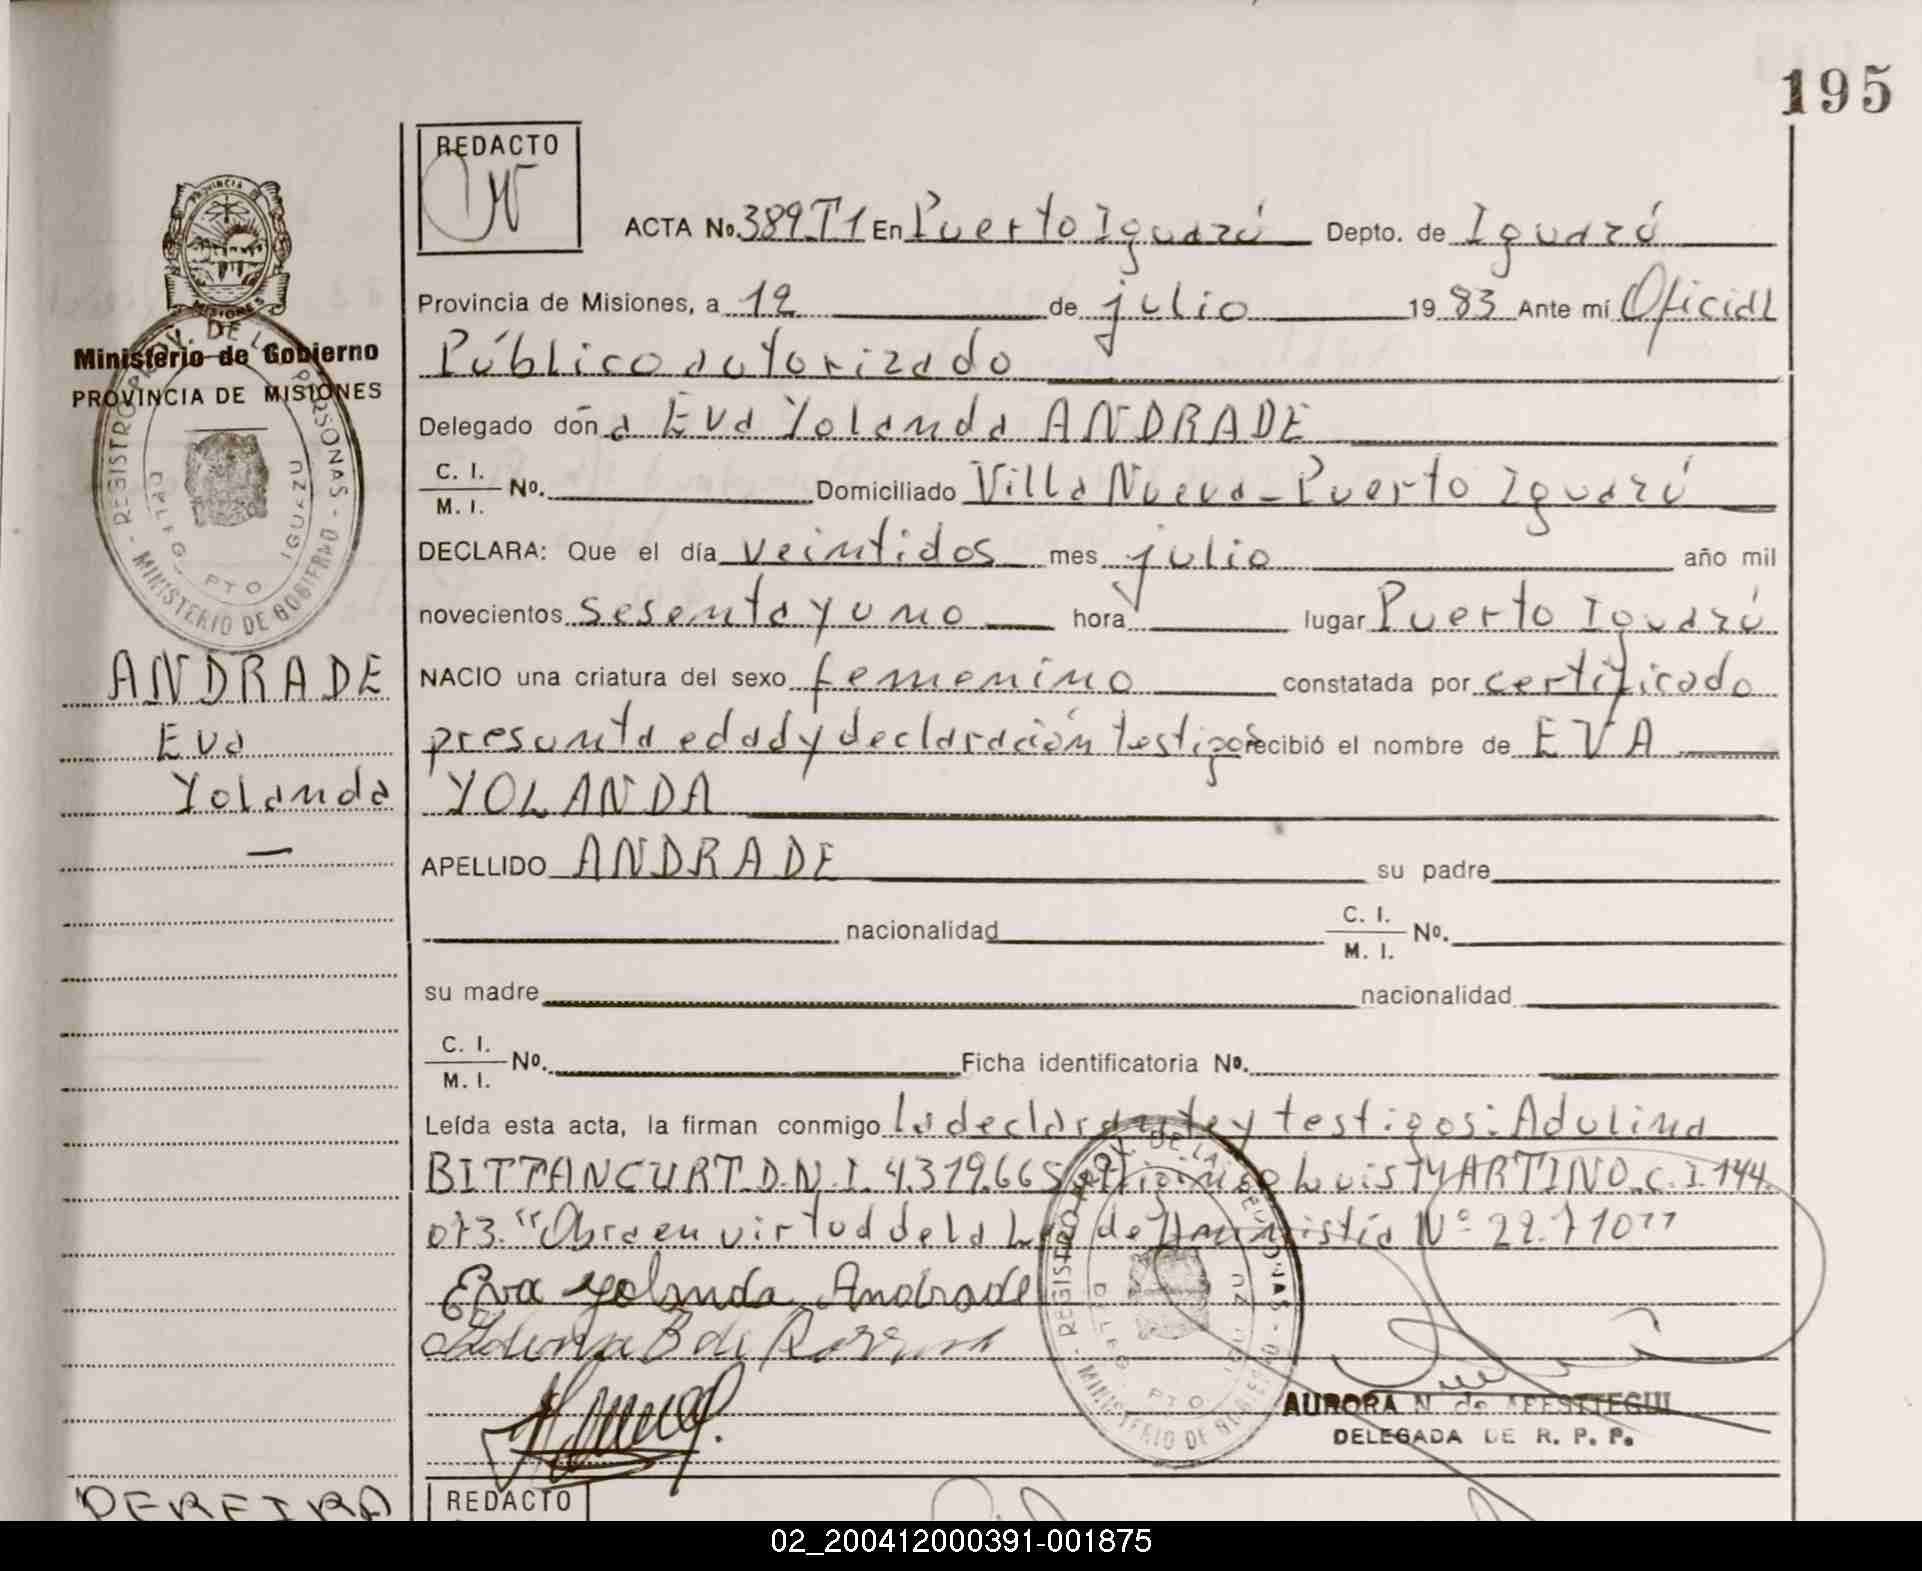 195
REDACTO
ACTA No. 389 T1 En Puerto Iguazú Depto. de Iguazú
Provincia de Misiones, a 12 de julio 19 83 Ante mí Oficial
Público autorizado
Delegado doña Eva Yolanda ANDRADE
C. I.
M. I. No. Domiciliado Villa Nueva - Puerto Iguazú
DECLARA: Que el día veintidos mes julio año mil
novecientos sesenta y uno hora lugar Puerto Iguazú
NACIO una criatura del sexo femenino constatada por certificado
presunta edad y declaración testigos recibió el nombre de EVA
YOLANDA
APELLIDO ANDRADE su padre
nacionalidad C. I.
M. I. No.
su madre nacionalidad
C. I.
M. I. No. Ficha identificatoria No.
Leída esta acta, la firman conmigo la declarante y testigos: Adulina
BITTANCURT D.N.I. 4.319.665 Luis MARTINO C.I. 144.
073. "Obra en virtud de la Ley de Amnistía Nº 22.710"
Eva Yolanda Andrade
AURORA N. de
DELEGADA DE R. P. P.
PROVINCIA DE
MISIONES
Ministerio de Gobierno
PROVINCIA DE MISIONES
REGISTRO PROV. DE LAS PERSONAS - MINISTERIO DE GOBIERNO -
DELEG. PTO IGUAZU
ANDRADE
Eva
Yolanda
REGISTRO PROV. DE LAS PERSONAS - MINISTERIO DE GOBIERNO -
DELEG. PTO IGUAZU
PEREIRA
REDACTO
02_200412000391-001875